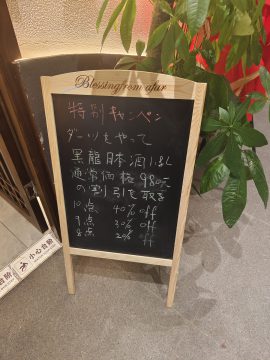 Blessing from afar
特别キャンペン
ダーツをやって
黒龍日本酒1.8L
通常価格980元
の割引を取る
10点 40% off
9点 30% off
8点 20% off
小心台阶
小心台阶